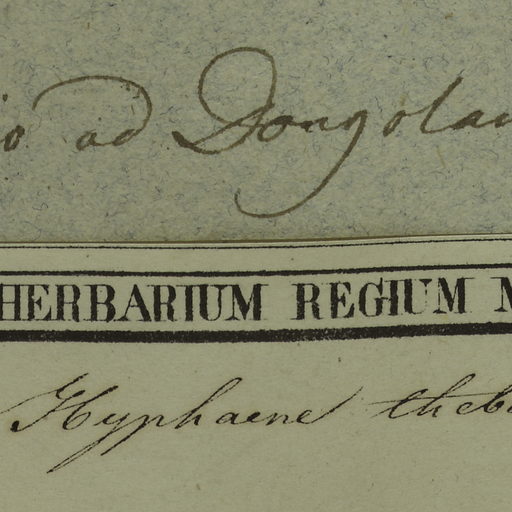 io ad Dongolam
HERBARIUM REGIUM M
Hyphaene theb